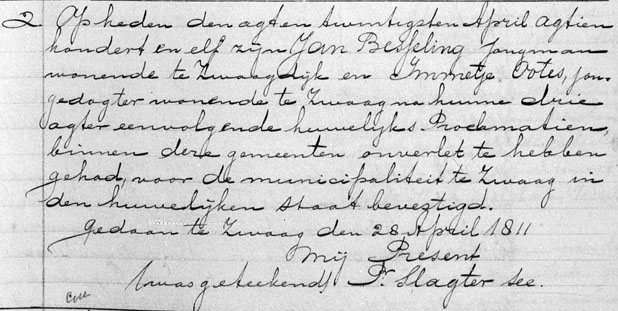 2 Op heden den agten twintigsten April agtien
hondert en elf zijn Jan Besseling Jongman
wonende te Zwaagdijk en Immetje Ootes, jon-
gedogter wonende te Zwaag na hunne drie
agter eenvolgende huwelijks Proclamatien,
binnen deze gemeenten onverlet te hebben
gehad, voor de municipaliteit te Zwaag in
den huwelijken staat bevestigd.
Gedaan te Zwaag den 28 April 1811
Mij Present
(was geteekend) Pr. Slagter sec.